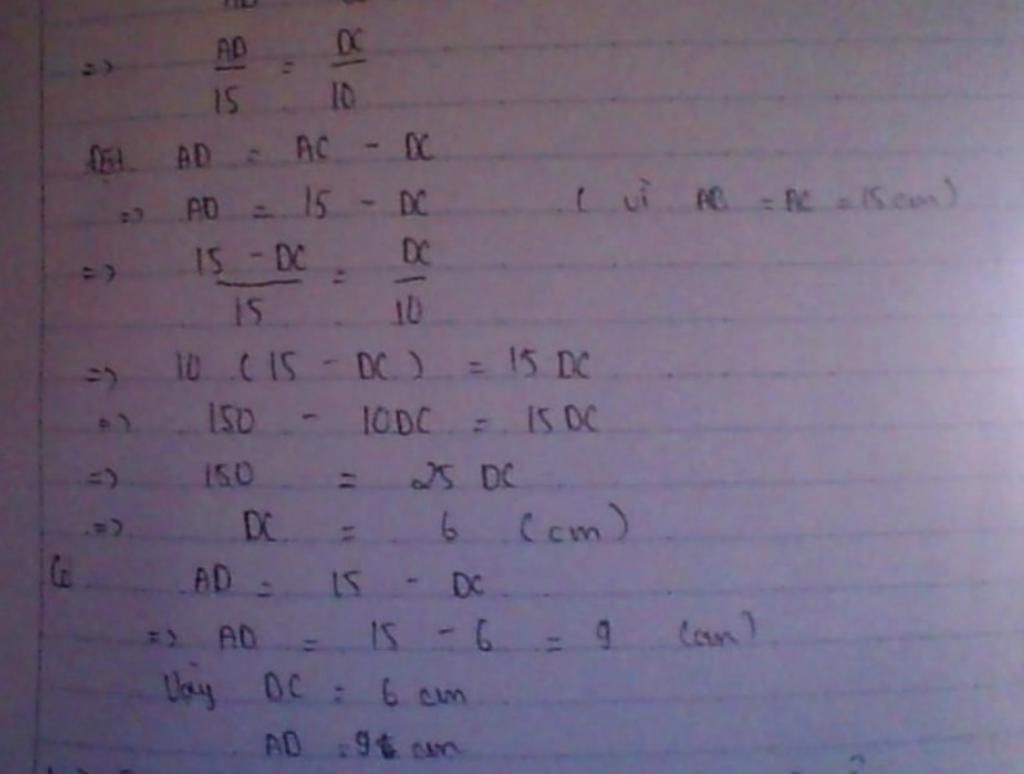 => AD/15 = DC/10
AD = AC - DC
=> AD = 15 - DC (vì AB = AC = 15cm)
=> 15 - DC/15 = DC/10
=> 10 (15 - DC) = 15 DC
=> 150 - 10DC = 15DC
=> 150 = 25 DC
=> DC = 6 (cm)
AD = 15 - DC
=> AD = 15 - 6 = 9 (cm)
Vậy DC = 6 cm
AD = 9 cm